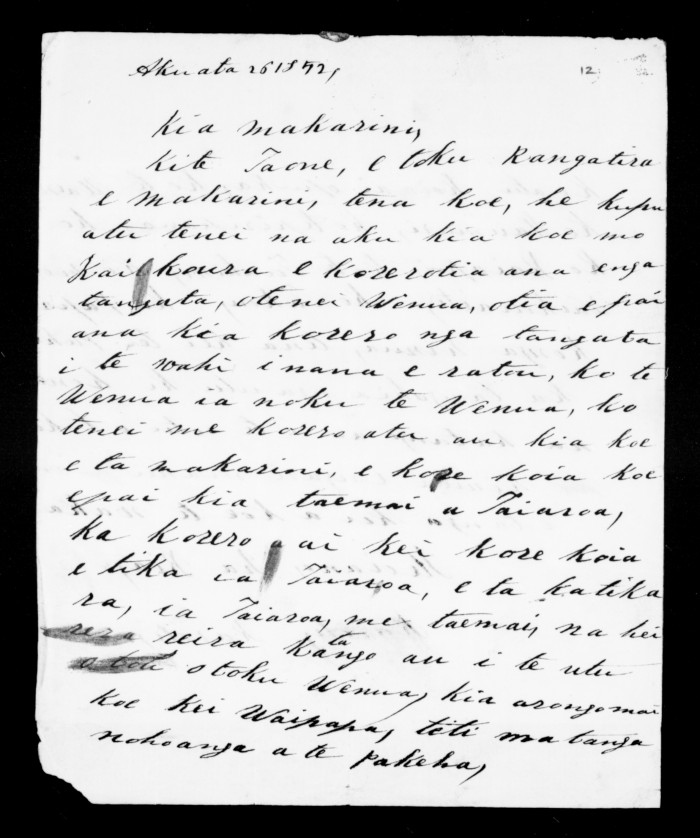 Akuata 26 1872,
12
Kia makarini,
Kite Taone, e toku Rangatira
e makarini, tena koe, he kupu
atu tenei na aku kia koe mo
Kaikoura e korerotia ana enga
tangata, otenei Wenua, otia e pai
ana kia korero nga tangata
i te wahi inana e ratou, ko te
Wenua ia noku te Wenua, ko
tenei me korero atu au kia koe
e ta makarini, e kore koia koe
epai kia taemai a Taiaroa,
ka korero ai kei kore koia
e tika ia Taiaroa, e ta katika
ra, ia Taiaroa, me taemai, na hei
reira ka tango au i te utu
o toku Wenua, kia arongomai
koe kei Waipapa, teti matanga
nohoanga a te pakeha,